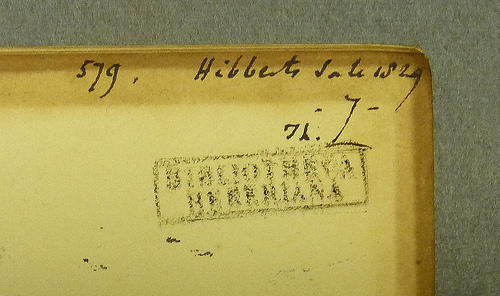 579. Hibberts Sale 1829
7
BIBLIOTHECA
HEBERIANA